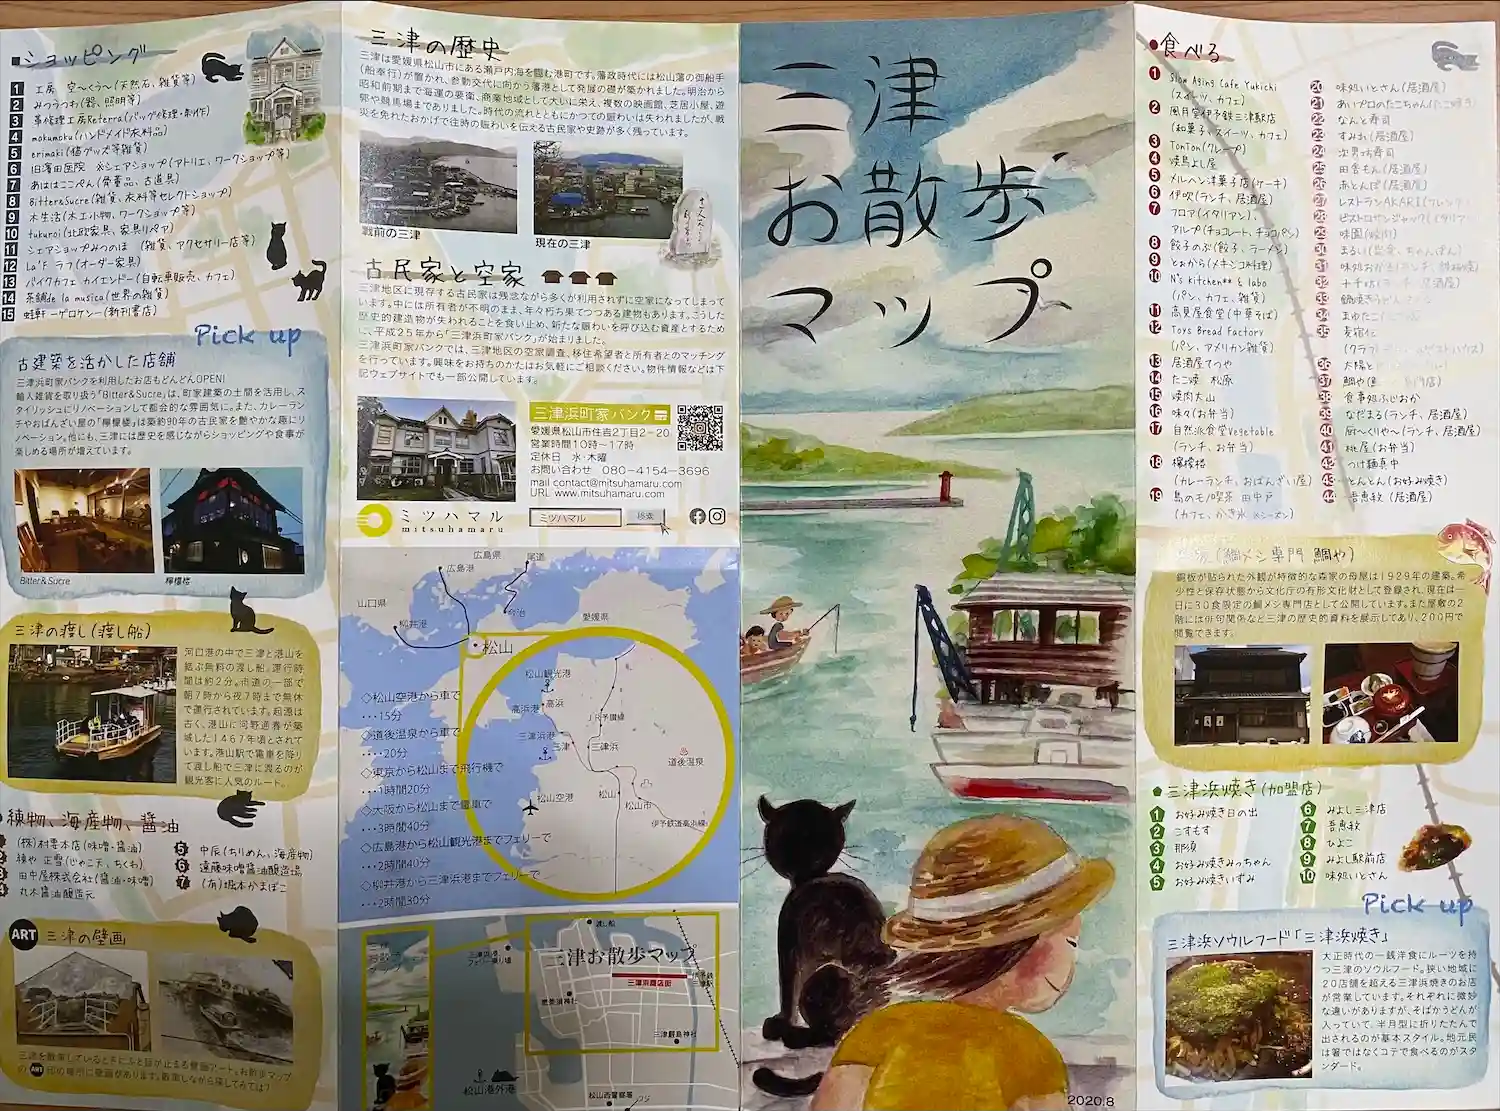 ■ショッピング
1 工房 空~くう~(天然石、雑貨等)
2 みつうつわ(器、照明等)
3 革修理工房Reterra(バッグ修理・制作)
4 mokumoku(ハンドメイド衣料品)
5 erimaki(猫グッズ等雑貨)
6 旧濱田医院 ※シェアショップ(アトリエ、ワークショップ等)
7 あははここぺん(骨董品、古道具)
8 Bitter&Sucre(雑貨、衣料等セレクトショップ)
9 木生活(木工小物、ワークショップ等)
10 tukuroi(北欧家具、家具リペア)
11 シェアショップみつのほ (雑貨、アクセサリー店等)
12 La'F ラフ(オーダー家具)
13 バイクカフェ カイエンドー(自転車販売、カフェ)
14 茶舗de la musica(世界の雑貨)
15 蛙軒-ゲロケン-(新刊書店)
Pick up
古建築を活かした店舗
三津浜町家バンクを利用したお店もどんどんOPEN!
輸入雑貨を取り扱う「Bitter&Sucre」は、町家建築の土間を活用し、ス
タイリッシュにリノベーションして都会的な雰囲気に。また、カレーラン
チやおばんざい屋の「檸檬楼」は築約90年の古民家を艶やかな趣にリ
ノベーション。他にも、三津には歴史を感じながらショッピングや食事が
楽しめる場所が増えています。
Bitter&Sucre
檸檬楼
三津の渡し(渡し船)
河口港の中で三津と港山を
結ぶ無料の渡し船。運行時
間は約2分。市道の一部で
朝7時から夜7時まで無休
で運行されています。起源は
古く、港山に河野通春が築
城した1467年頃とされて
います。港山駅で電車を降り
て渡し船で三津に渡るのが
観光客に人気のルート。
練物、海産物、醤油
(株)村要本店(味噌・醤油)
練や 正雪(じゃこ天、ちくわ)
3 田中屋株式会社(醤油・味噌)
4 丸木醤油醸造元
5 中辰(ちりめん、海産物)
6 遠藤味噌醤油醸造場
7 (有)坂本かまぼこ
ART 三津の壁画
三津を散策しているときにふと目が止まる壁画アート。お散歩マップ
の ART 印の場所に壁画があります。散策しながら探してみては?
三津の歴史
三津は愛媛県松山市にある瀬戸内海を臨む港町です。藩政時代には松山藩の御船手
(船奉行)が置かれ、参勤交代に向かう藩港として発展の礎が築かれました。明治から
昭和前期まで海運の要衝、商業地域として大いに栄え、複数の映画館、芝居小屋、遊
郭や競馬場までありました。時代の流れとともにかつての賑わいは失われましたが、戦
災を免れたおかげで往時の賑わいを伝える古民家や史跡が多く残っています。
戦前の三津
現在の三津
古民家と空家
三津地区に現存する古民家は残念ながら多くが利用されずに空家になってしまって
います。中には所有者が不明のまま、年々朽ち果てつつある建物もあります。こうした
歴史的建造物が失われることを食い止め、新たな賑わいを呼び込む資産とするため
に、平成25年から「三津浜町家バンク」が始まりました。
三津浜町家バンクでは、三津地区の空家調査、移住希望者と所有者とのマッチング
を行っています。興味をお持ちのかたはお気軽にご相談ください。物件情報などは下
記ウェブサイトでも一部公開しています。
三津浜町家バンク
愛媛県松山市住吉2丁目2-20
営業時間10時~17時
定休日 水・木曜
お問い合わせ 080-4154-3696
mail contact@mitsuhamaru.com
URL www.mitsuhamaru.com
ミツハマル
mitsuhamaru
ミツハマル 検索
広島県
尾道
広島港
山口県
今治
柳井港
愛媛県
松山
◇松山空港から車で
・・・15分
◇道後温泉から車で
・・・・20分
◇東京から松山まで飛行機で
・・・1時間20分
◇大阪から松山まで電車で
・・・3時間40分
◇広島港から松山観光港までフェリーで
・・・2時間40分
◇柳井港から三津浜港までフェリーで
・・・2時間30分
松山観光港
高浜港
高浜
JR予讃線
三津浜港
三津
三津浜
道後温泉
松山空港
松山
松山市
伊予鉄道高浜線
三津
お散歩
マップ
渡し船
三津浜港
フェリー乗り場
三津お散歩マップ
三津浜商店街
伊予鉄
三津駅
恵美須神社
三津厳島神社
松山港外港
松山西警察署
三津
お散歩
マップ
2020.8
●食べる
1 Slow Aging Cafe Yukichi
(スイーツ、カフェ)
2 風月堂伊予鉄三津駅店
(和菓子、スイーツ、カフェ)
3 TonTon(クレープ)
4 焼鳥よし屋
5 メルヘン洋菓子店(ケーキ)
6 伊吹(ランチ、居酒屋)
7 フロア(イタリアン)、
アルプ(チョコレート、チョコパン)
8 餃子のぶ(餃子、ラーメン)
9 とぉから(メキシコ料理)
10 N's kitchen** & labo
(パン、カフェ、雑貨)
11 高見屋食堂(中華そば)
12 Toys Bread Factory
(パン、アメリカン雑貨)
13 居酒屋てつや
14 たこ焼 松原
15 焼肉大山
16 味々(お弁当)
17 自然派食堂Vegetable
(ランチ、お弁当)
18 檸檬楼
(カレーランチ、おばんざい屋)
19 島のモノ喫茶 田中戸
(カフェ、かき氷 ※シーズン)
20 味処いとさん(居酒屋)
21 あいゼロのたこちゃん(たこ焼き)
22 なんと寿司
23 すみれ(居酒屋)
24 次男坊寿司
25 田舎もん(居酒屋)
26 赤とんぼ(居酒屋)
27 レストランAKARI(フレンチ)
28 ビストロサンジャック(イタリア
29 味園(焼肉)
30 まるい
31 味処おがる
32
33 鍋焼きうどん
34 まゆたこ
35 麦宿伝
36
37 鯛や
38 食事処ふじおか
39 なだまる(ランチ、居酒屋)
40 厨~くりや~(ランチ、居酒屋)
41 桃屋(お弁当)
42 つけ麺真中
43 とんとん(お好み焼き)
44 吾恵紋(居酒屋)
(鯛メシ専門 鯛や)
銅板が貼られた外観が特徴的な森家の母屋は1929年の建築。希
少性と保存状態から文化庁の有形文化財として登録され、現在は一
日に30食限定の鯛メシ専門店として公開しています。また屋敷の2
階には俳句関係など三津の歴史的資料を展示してあり、200円で
閲覧できます。
三津浜焼き(加盟店)
1 お好み焼き日の出
2 こすもす
3 那須
4 お好み焼きみっちゃん
5 お好み焼きいずみ
6 みよし三津店
7 吾恵紋
8 ひよこ
9 みよし駅前店
10 味処いとさん
Pick up
三津浜ソウルフード「三津浜焼き」
大正時代の一銭洋食にルーツを持
つ三津のソウルフード。狭い地域に
20店舗を超える三津浜焼きのお店
が営業しています。それぞれに微妙
な違いがありますが、そばかうどんが
入っていて、半月型に折りたたんで
出されるのが基本スタイル。地元民
は箸ではなくコテで食べるのがスタ
ンダード。